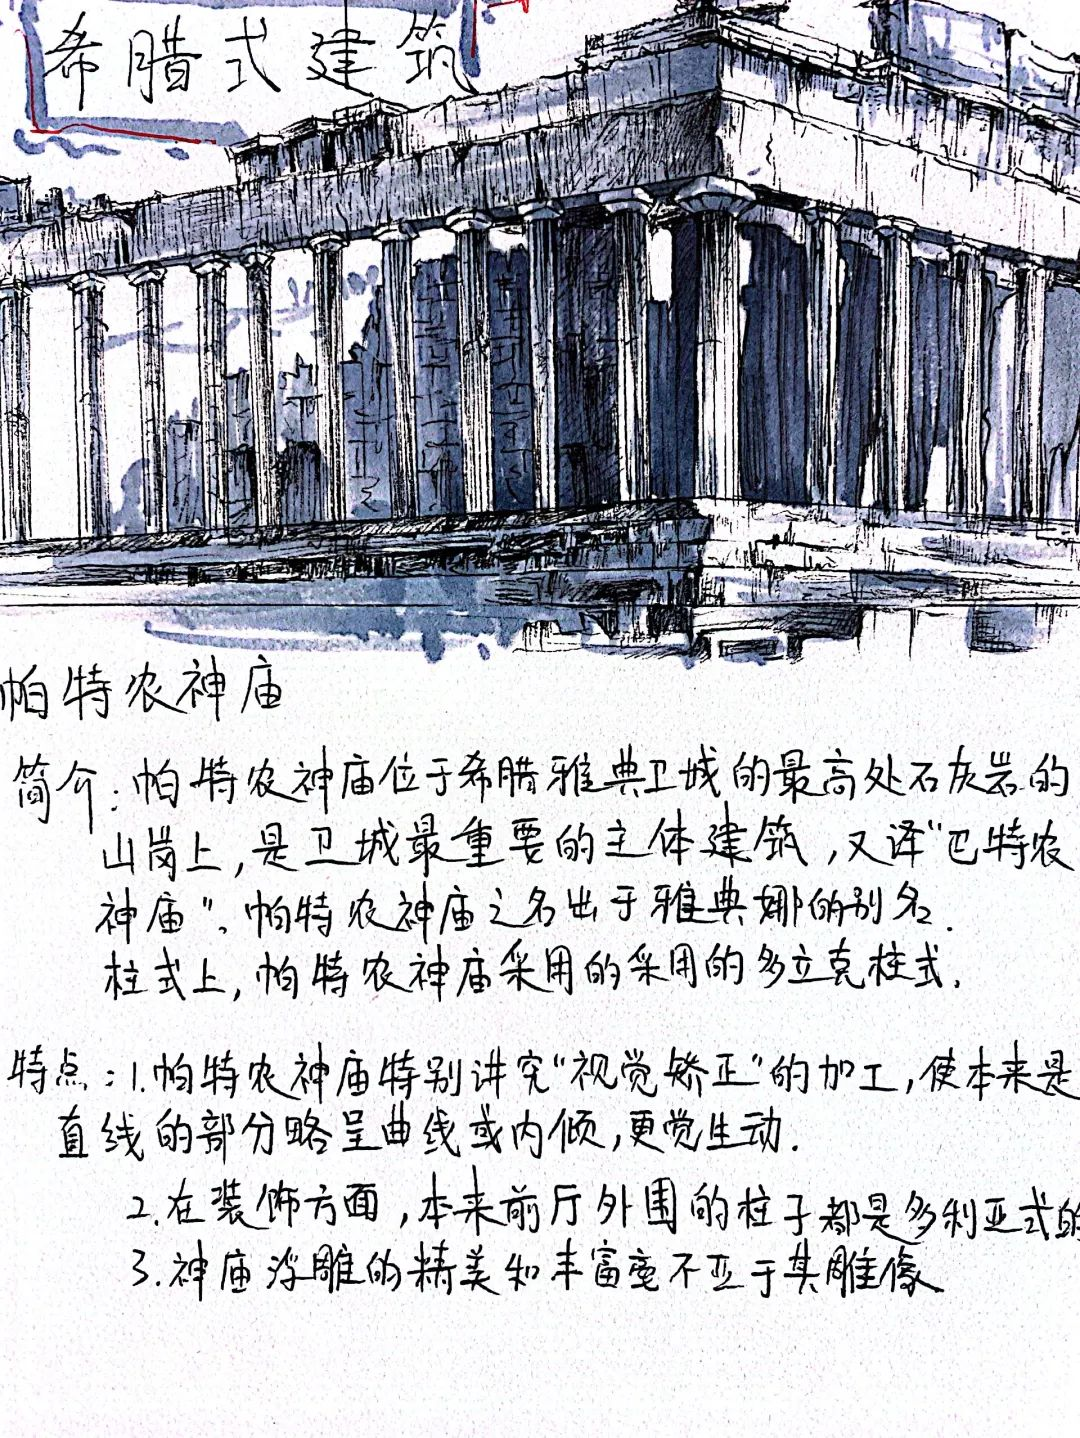 希腊式建筑
帕特农神庙
简介:帕特农神庙位于希腊雅典卫城的最高处石灰岩的
山岗上,是卫城最重要的主体建筑,又译"巴特农
神庙"。帕特农神庙之名出于雅典娜的别名.
柱式上,帕特农神庙采用的采用的多立克柱式.
特点:1.帕特农神庙特别讲究"视觉矫正"的加工,使本来是
直线的部分略呈曲线或内倾,更觉生动.
2.在装饰方面,本来前厅外围的柱子都是多利亚式的
3.神庙浮雕的精美和丰富度不亚于其雕像